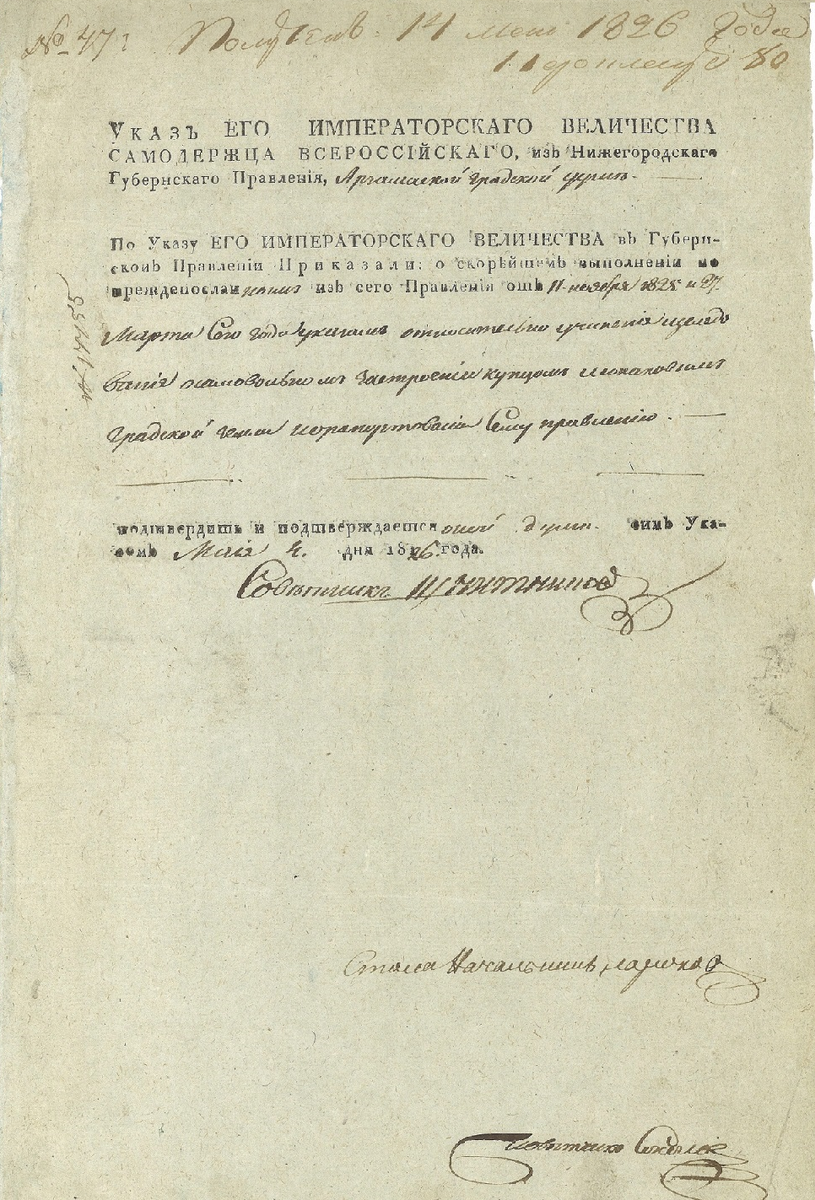 № 47 Получен. 14 мая 1826 года
Указъ ЕГО ИМПЕРАТОРСКАГО ВЕЛИЧЕСТВА
САМОДЕРЖЦА ВСЕРОССІЙСКАГО, изъ Нижегородскаго
Губернскаго Правленія, Арзамаской градской думѣ.
По Указу ЕГО ИМПЕРАТОРСКАГО ВЕЛИЧЕСТВА въ Губерн-
скомъ Правленіи Приказали: о скорѣйшемъ выполненіи по
преждепосланнымъ изъ сего Правленія отъ 11 ноября 1825 и 27
Марта сего года указамъ относительно учиненія изслѣдо
ванія о самовольномъ застроеніи купцомъ
градской земли и о рапортованіи сему правленію.
подтвердить и подтверждается оной думѣ симъ Ука-
зомъ Маія 4. дня 1826 года.
Совѣтникъ
Стола Начальникъ